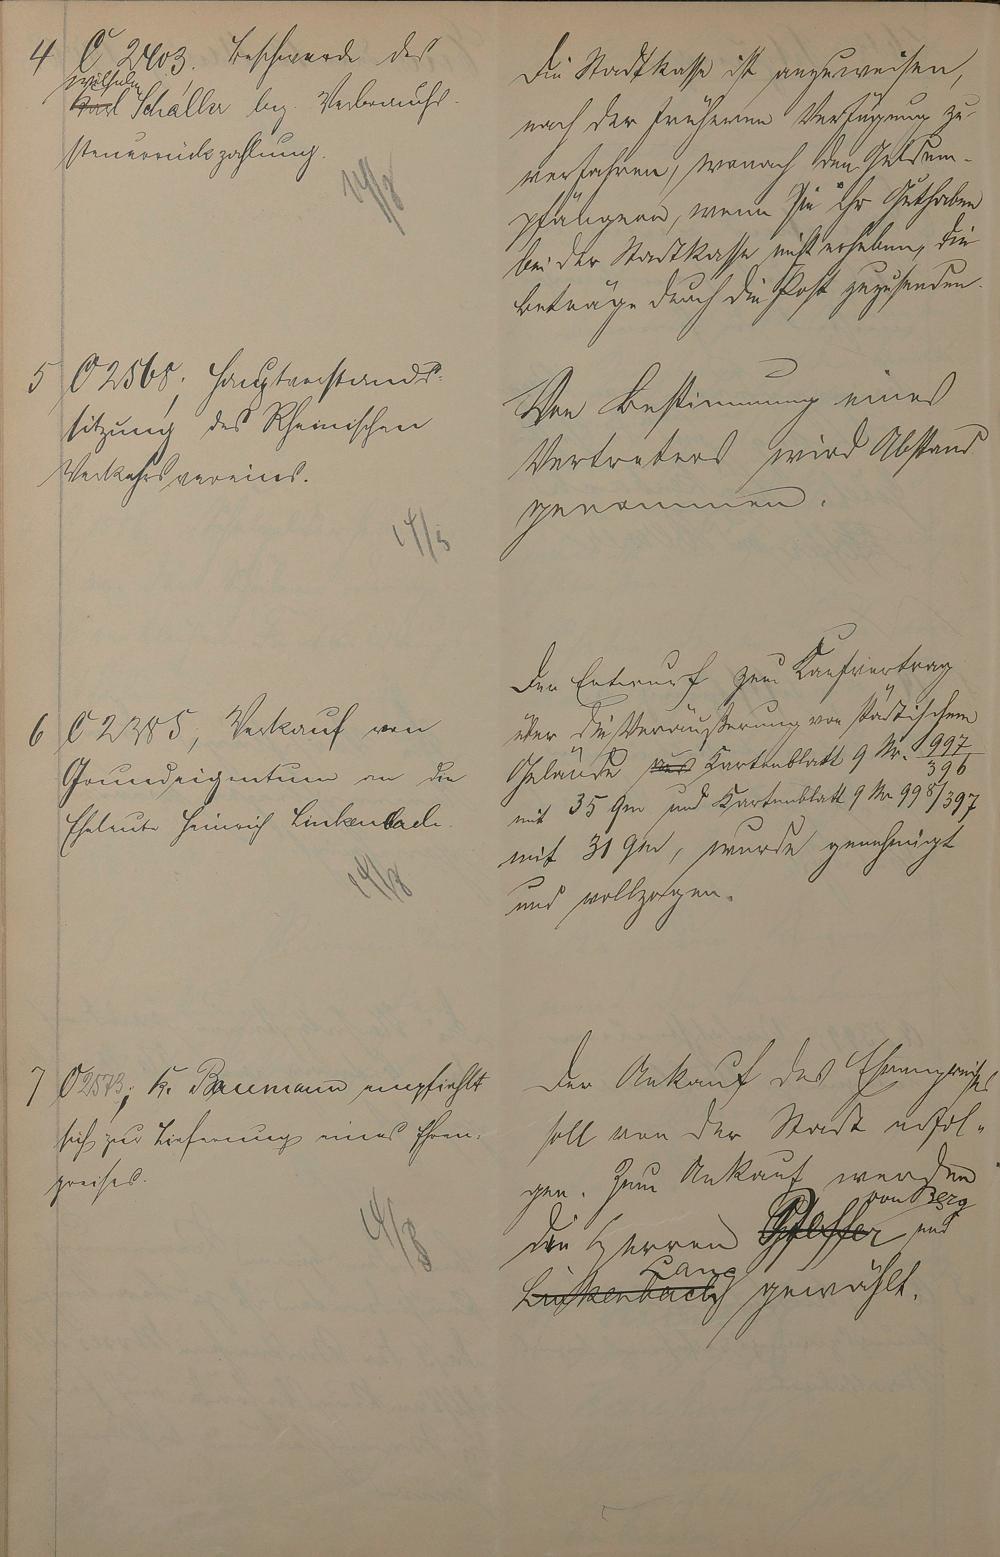 4 C 2403. Beschwerde des
Wilhelm
Karl Schäller bez. Verbrauchs-
steuerrückzahlung.
14/8
Die Stadtkasse ist anzuweisen,
nach der früheren Verfügung zu
verfahren, wonach den Geldem-
pfängern, wenn sie ihr Guthaben
bei der Stadtkasse nicht erheben, die
Beträge durch die Post zuzusenden.
5 C 2568, Hauptvorstands-
sitzung des Rheinischen
Verkehrsvereins.
14/8
Von Bestimmung eines
Vertreters wird Abstand
genommen.
6 C 2385, Verkauf von
Grundeigentum an die
Eheleute Heinrich Linkenbach.
14/8
Der Entwurf zum Kaufvertrag
über die Veräußerung von städtischem
Gelände aus Kartenblatt 9 Nr. 997/396
mit 35 qm und Kartenblatt 9 Nr 998/397
mit 31 qm, wurde genehmigt
und vollzogen.
7 C 2573; K. Baumann empfiehlt
sich zur Lieferung eines Ehren-
preises.
14/8
Der Ankauf des Ehrenpreises
soll von der Stadt erfol-
gen. Zum Ankauf werden
von Berg
die Herren Pfeffer und
Lang
Linkenbach gewählt.